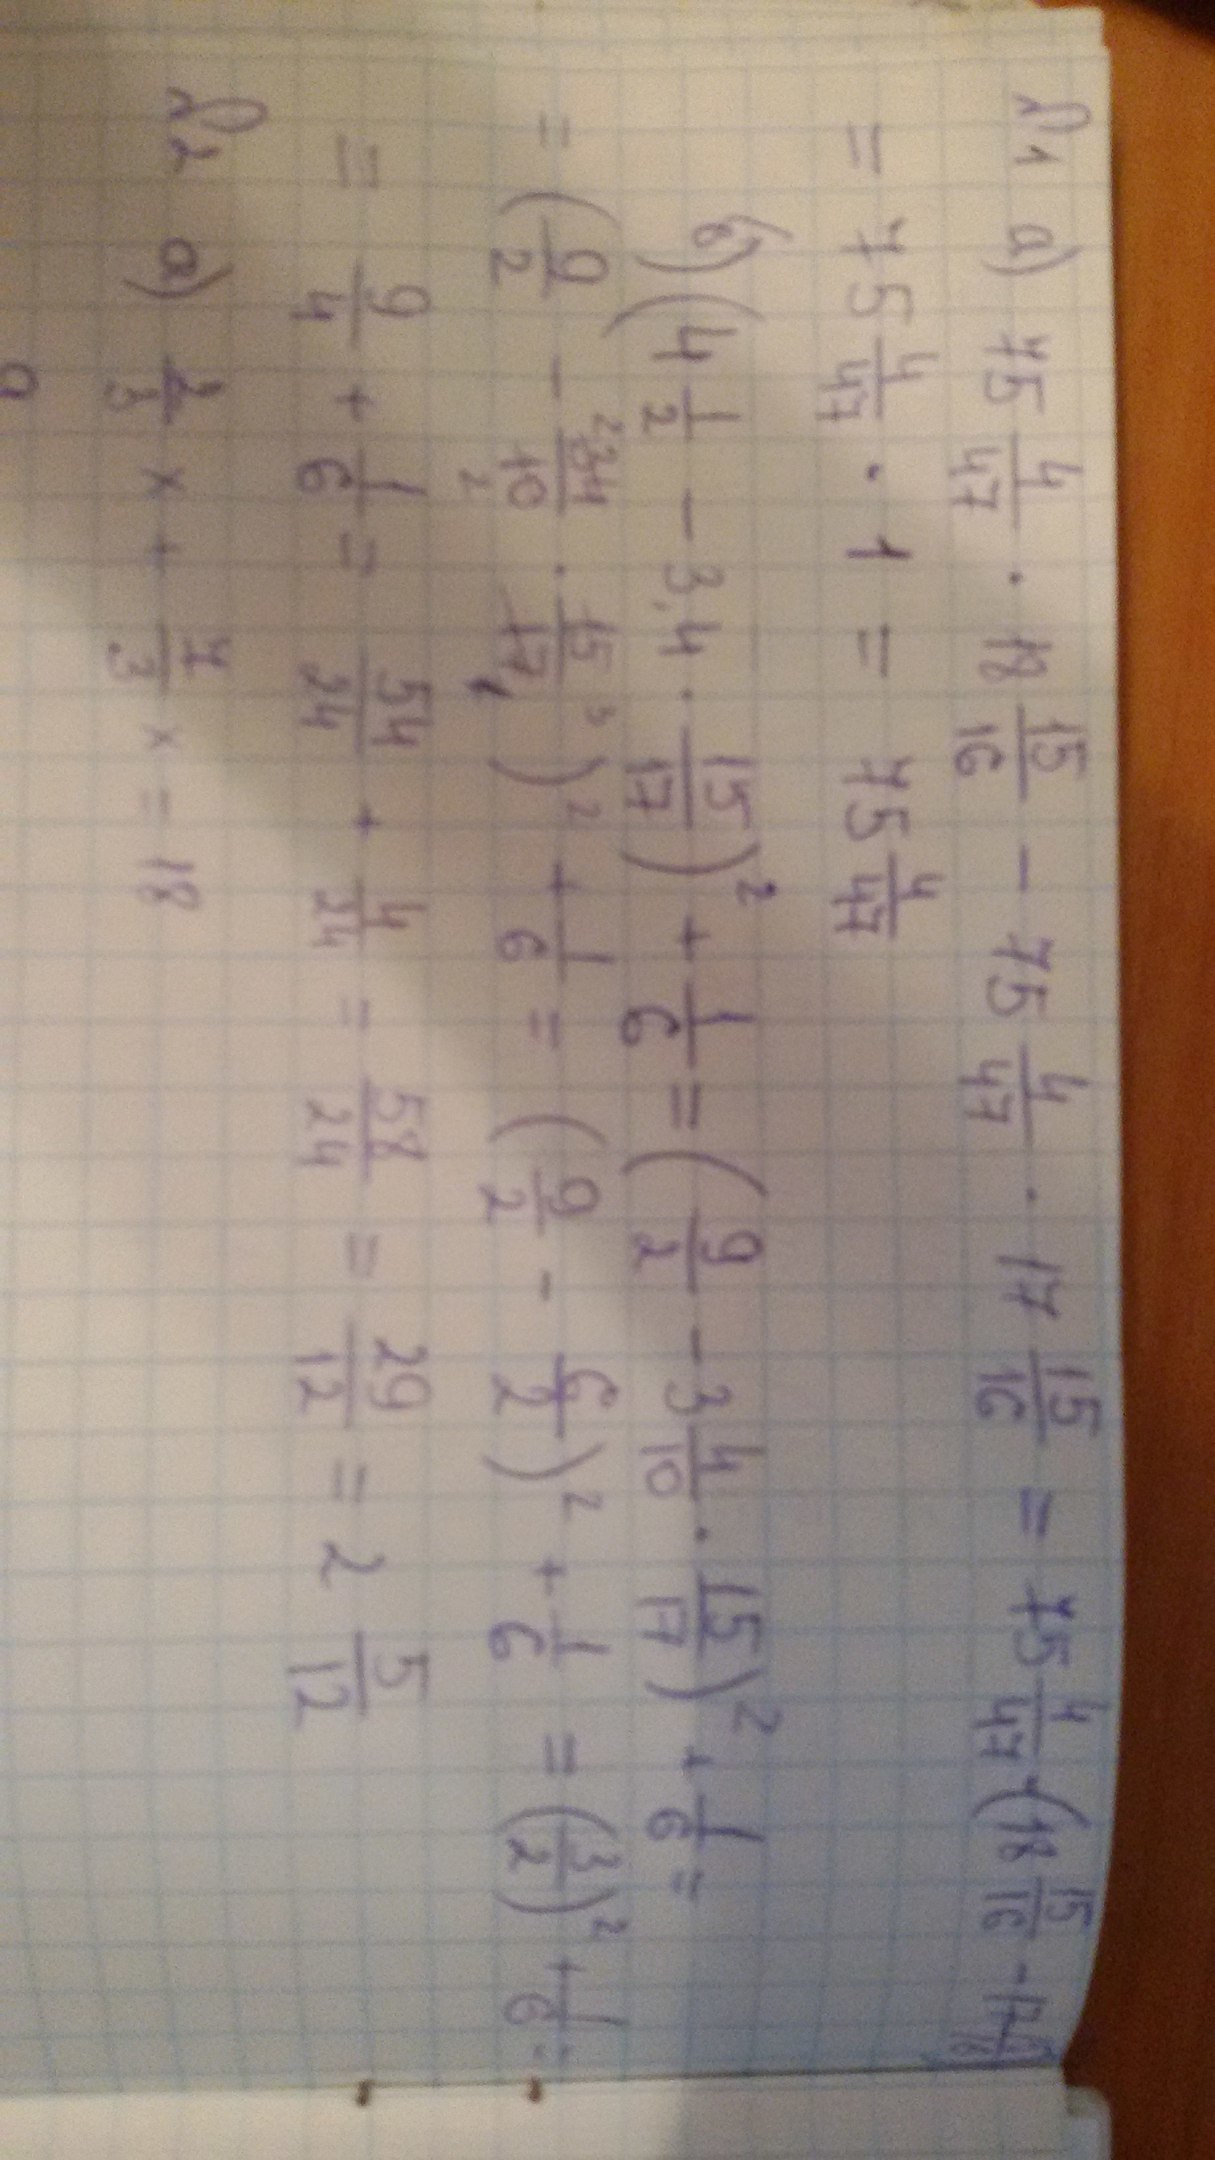 №1 а) 75 4/47 · 18 15/16 − 75 4/47 · 17 15/16 = 75 4/47 · (18 15/16 − 17
= 75 4/47 · 1 = 75 4/47
б) (4 1/2 − 3,4 · 15/17)² + 1/6 = (9/2 − 3 4/10 · 15/17)² + 1/6 =
= (9/2 − 34/10 · 15/17)² + 1/6 = (9/2 − 6/2)² + 1/6 = (3/2)² + 1/6 =
= 9/4 + 1/6 = 54/24 + 4/24 = 58/24 = 29/12 = 2 5/12
№2 а) 2/3 x + 7/3 x = 18
9